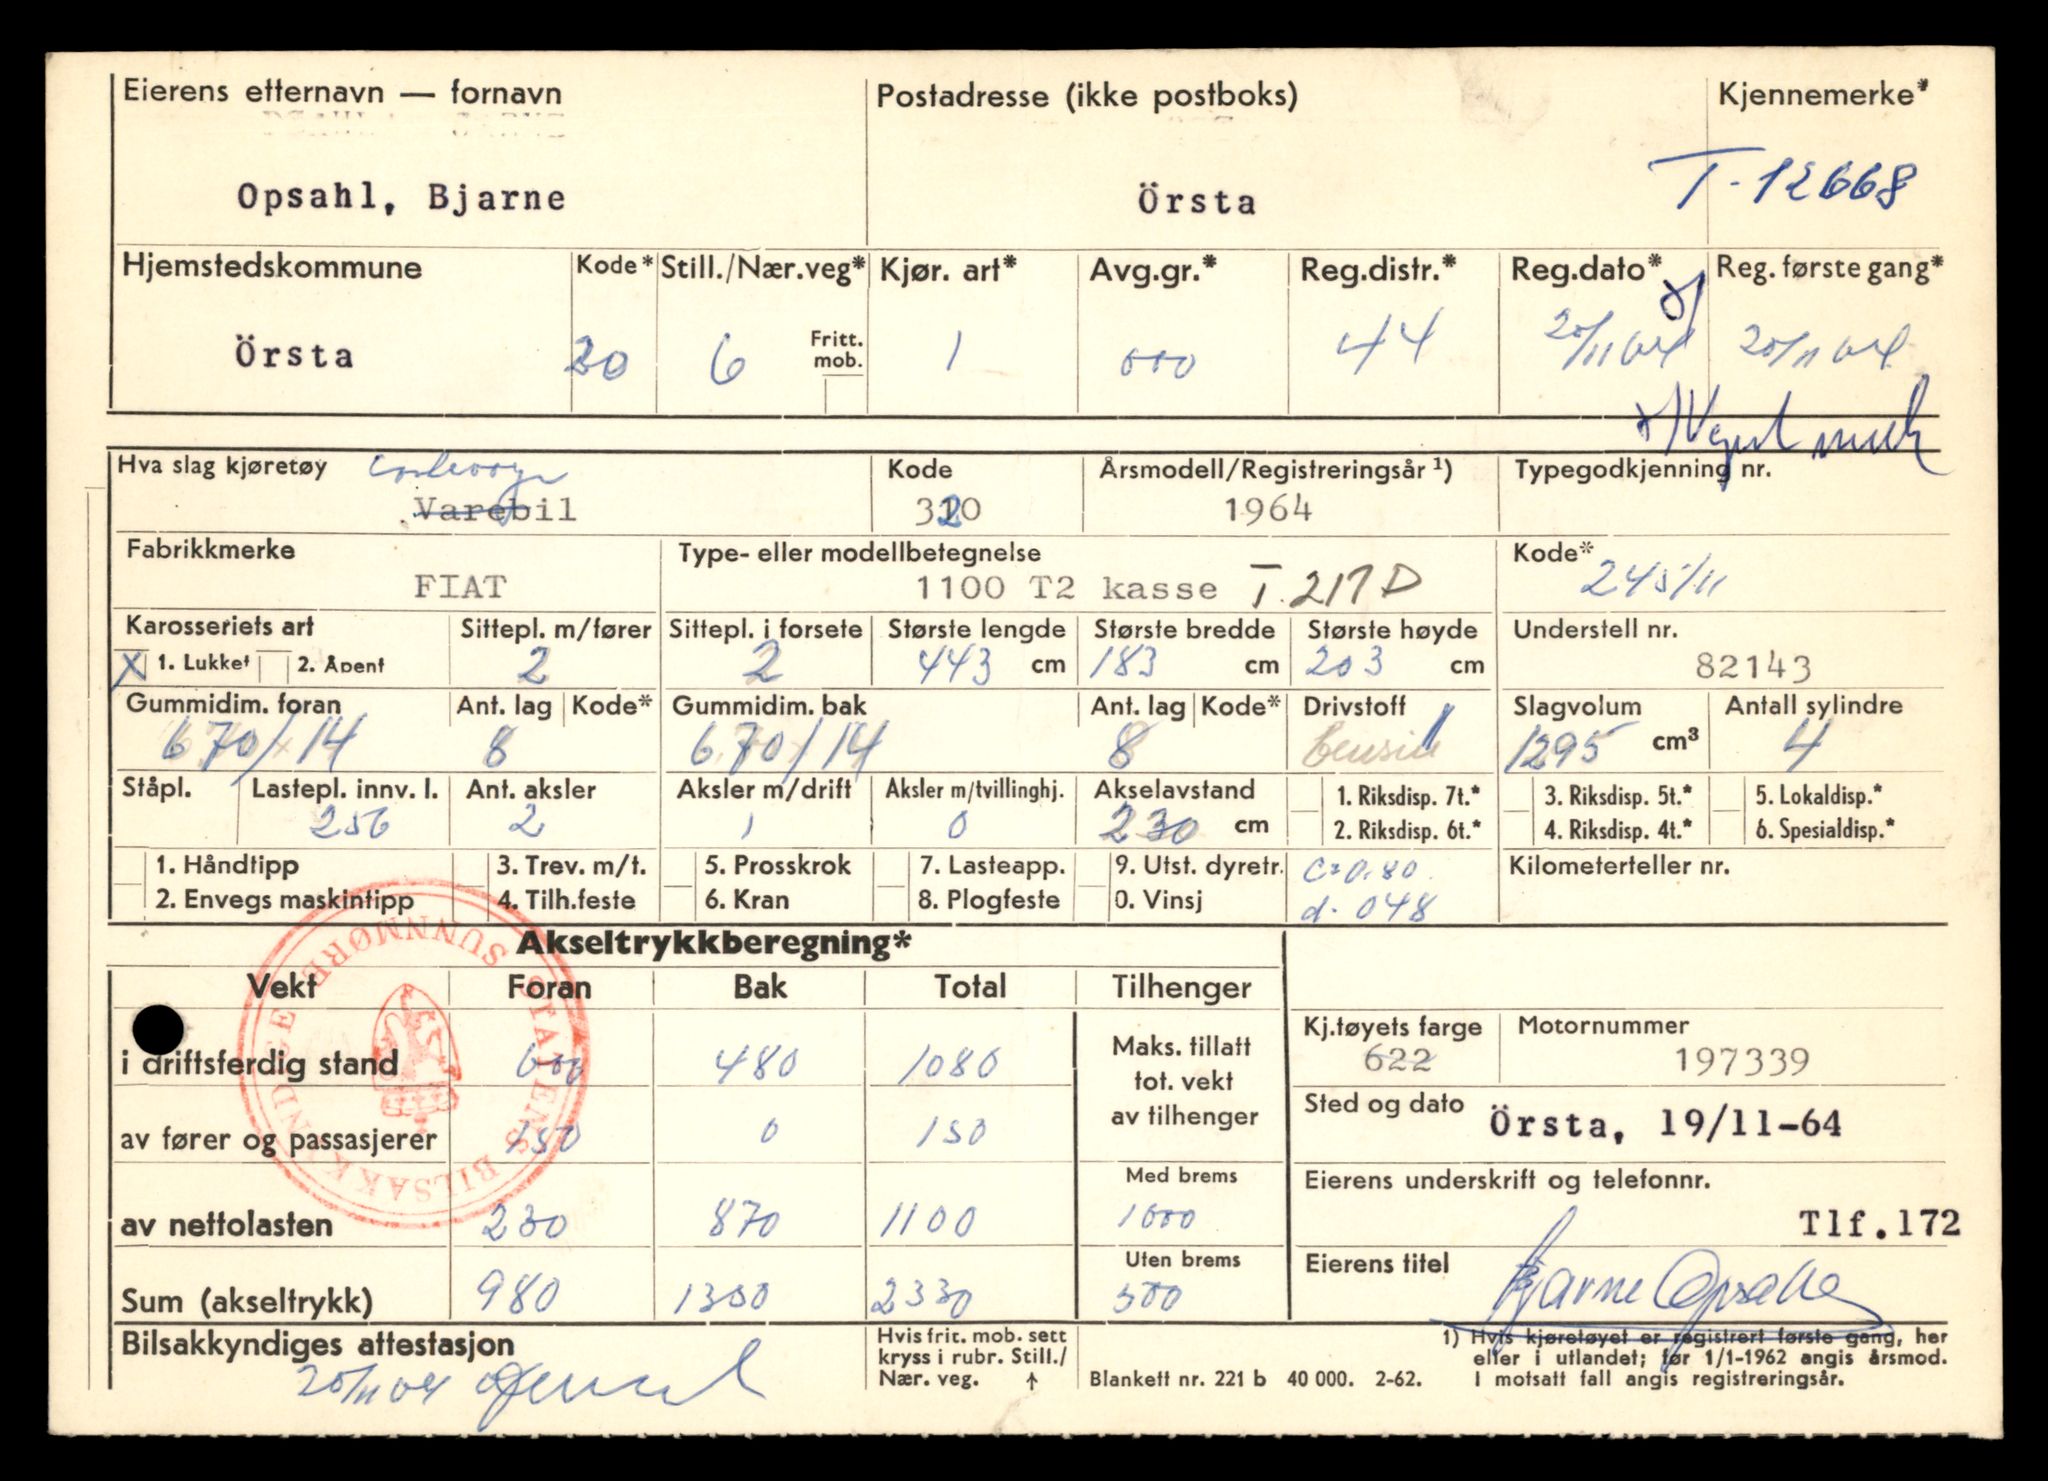 Eierens etternavn — fornavn Postadresse (ikke postboks) Kjennemerke*
Opsahl, Bjarne Örsta T-12668
Hjemstedskommune Kode* Still./Nær.veg* Kjør. art* Avg.gr.* Reg.distr.* Reg.dato* Reg. første gang*
Örsta 20 6 Fritt. mob. 1 000 44 20/11 64 20/11 64
Hva slag kjøretøy Kode Årsmodell/Registreringsår ¹) Typegodkjenning nr.
Varebil 320 1964
Fabrikkmerke Type- eller modellbetegnelse Kode*
FIAT 1100 T2 kasse T.217D 245/11
Karosseriets art Sittepl. m/fører Sittepl. i forsete Største lengde Største bredde Største høyde Understell nr.
X 1. Lukket 2. Åpent 2 2 443 cm 183 cm 203 cm 82143
Gummidim. foran Ant. lag Kode* Gummidim. bak Ant. lag Kode* Drivstoff Slagvolum Antall sylindre
670/14 8 670/14 8 bensin 1 1295 cm³ 4
Ståpl. Lastepl. innv. l. Ant. aksler Aksler m/drift Aksler m/tvillinghj. Akselavstand 1. Riksdisp. 7t.* 3. Riksdisp. 5t.* 5. Lokaldisp.*
256 2 1 0 230 cm 2. Riksdisp. 6t.* 4. Riksdisp. 4t.* 6. Spesialdisp.*
1. Håndtipp 3. Trev. m/t. 5. Prosskrok 7. Lasteapp. 9. Utst. dyretr. C=0.80 Kilometerteller nr.
2. Envegs maskintipp 4. Tilh.feste 6. Kran 8. Plogfeste 0. Vinsj d. 048
STATENS BILSAKKYNDIGE SUNNMØRE
Akseltrykkberegning*
Vekt Foran Bak Total Tilhenger
i driftsferdig stand 600 480 1080 Maks. tillatt tot. vekt av tilhenger
Kj.tøyets farge Motornummer
622 197339
av fører og passasjerer 150 0 150
Sted og dato Örsta, 19/11-64
av nettolasten 230 870 1100 Med brems 1000
Eierens underskrift og telefonnr.
Tlf.172
Sum (akseltrykk) 980 1350 2330 Uten brems 500
Eierens titel Bjarne Opsahl
Bilsakkyndiges attestasjon
20/11 64
Hvis frit. mob. sett
kryss i rubr. Still./
Nær. veg. ↑
Blankett nr. 221 b 40 000. 2-62.
1) Hvis kjøretøyet er registrert første gang, her
eller i utlandet; før 1/1-1962 angis årsmod.
I motsatt fall angis registreringsår.